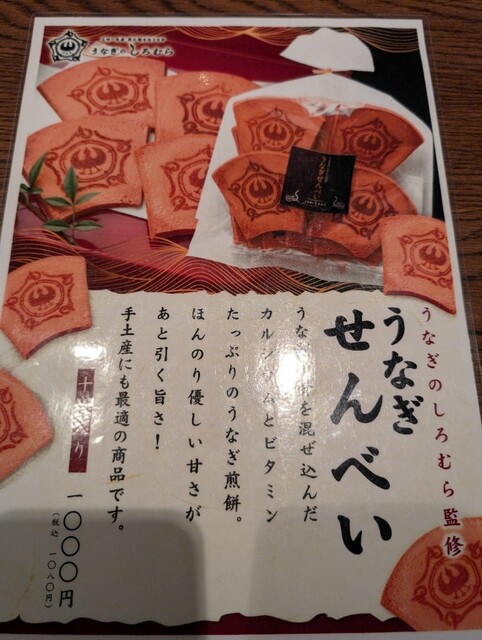 うなぎのしろむら
うなぎのしろむら監修
うなぎ
せんべい
を混ぜ込んだ
カルシウムとビタミン
たっぷりのうなぎ煎餅。
ほんのり優しい甘さが
あと引く旨さ！
手土産にも最適の商品です。
一〇〇〇円
（税込 一〇八〇円）
うなぎせんべい